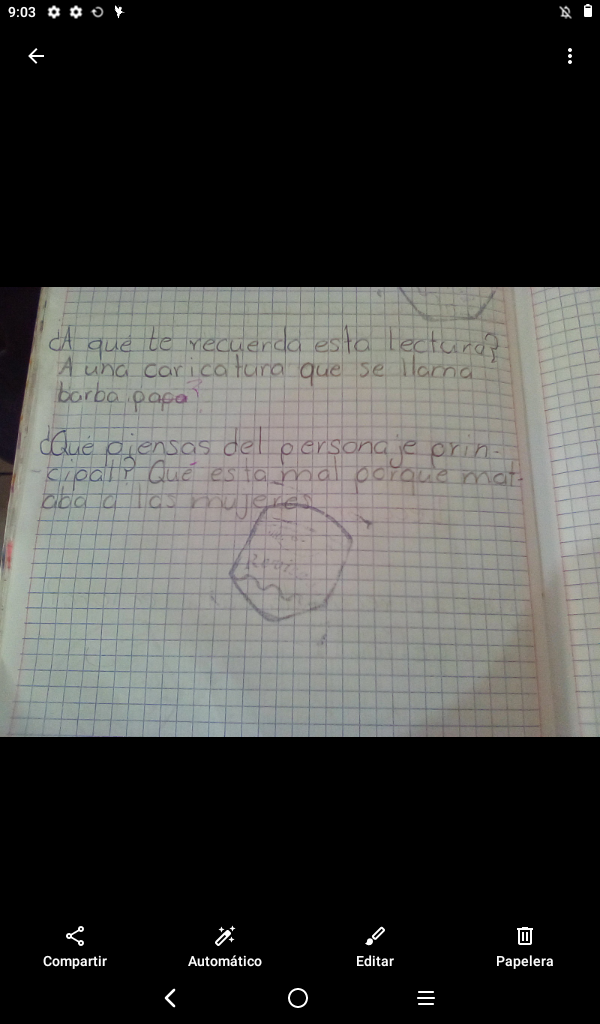 9:03
¿A que te recuerda esta lectura?
A una caricatura que se llama
barba papa?
¿Qué piensas del personaje prin-
cipal? Qué esta mal porque mat-
aba a las mujeres
Compartir
Automático
Editar
Papelera